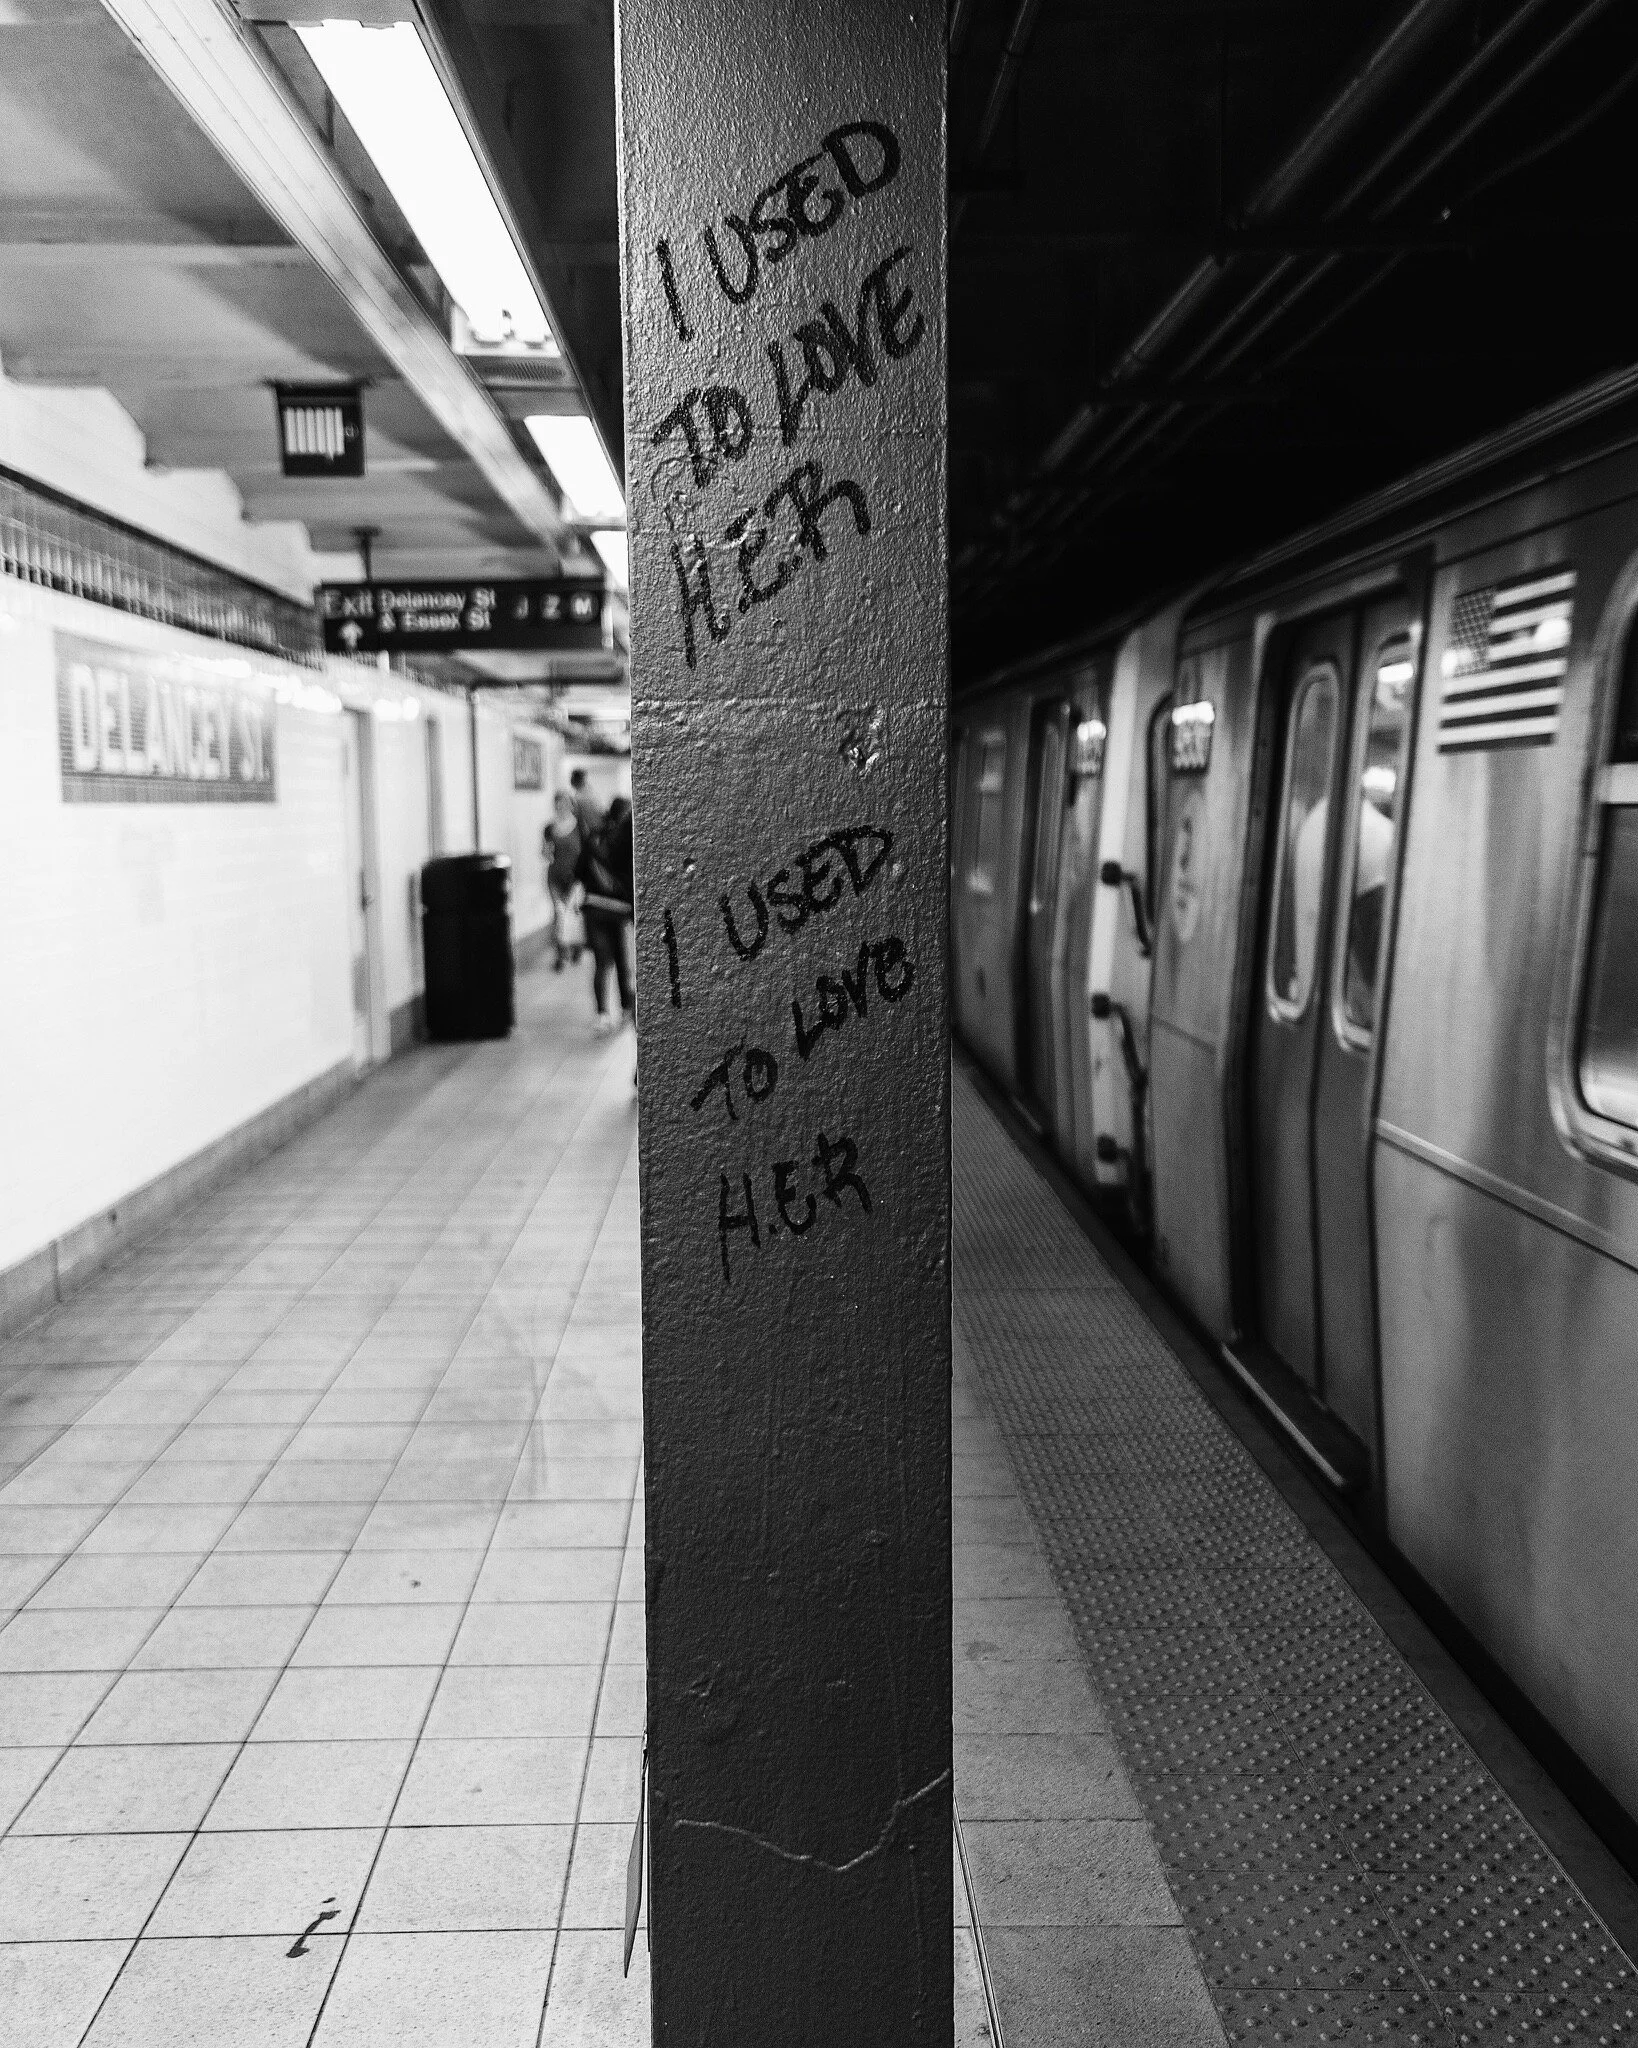 I USED
TO LOVE
H.ER
I USED
TO LOVE
H.ER
Exit Delancey St J Z M
& Essex St
DELANCEY ST.